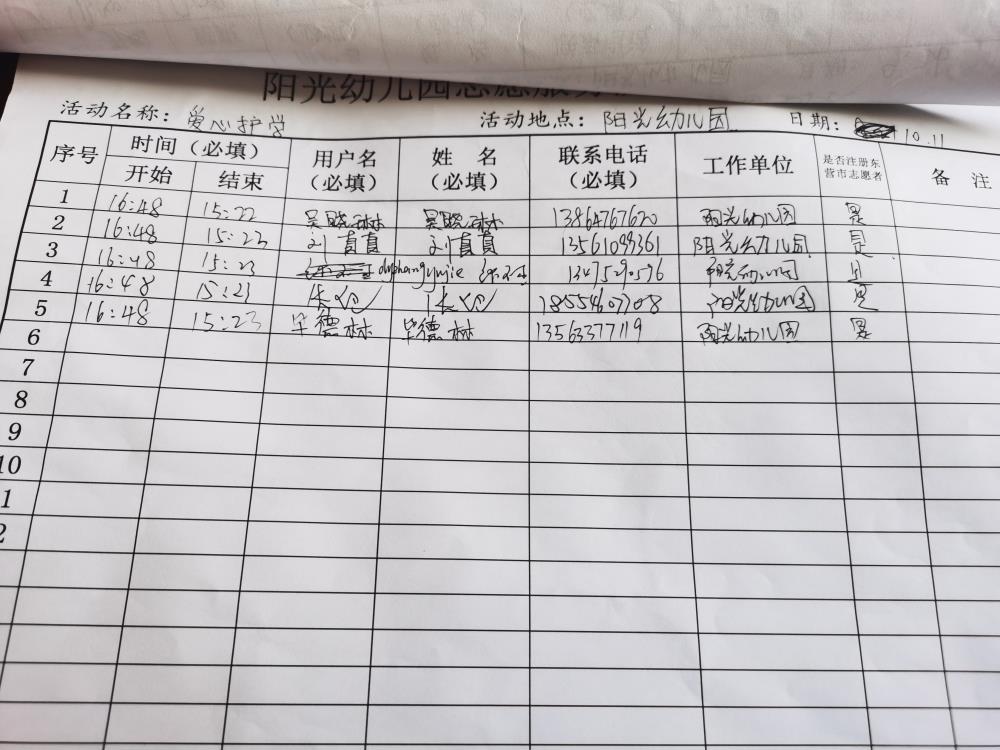 阳光幼儿园志愿服务
活动名称：爱心护学 活动地点：阳光幼儿园 日期：10.11
序号 时间（必填） 用户名（必填） 姓 名（必填） 联系电话（必填） 工作单位 是否注册东营市志愿者 备 注
开始 结束
1 16:48 15:22 吴晓琳 吴晓琳 13864767620 阳光幼儿园 是
2 16:48 15:23 刘真真 刘真真 13561099361 阳光幼儿园 是
3 16:48 15:23 阳光幼儿园 是
4 16:48 15:23 18554607708 阳光幼儿园 是
5 16:48 15:23 毕德林 毕德林 13563377119 阳光幼儿园 是
6
7
8
9
10
1
2